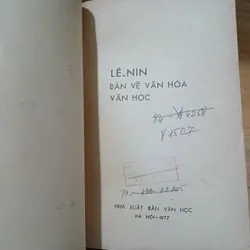 LÊ-NIN
BÀN VỀ VĂN HÓA
VĂN HỌC
V 150.7
NHÀ XUẤT BẢN VĂN HỌC
HÀ NỘI-1977